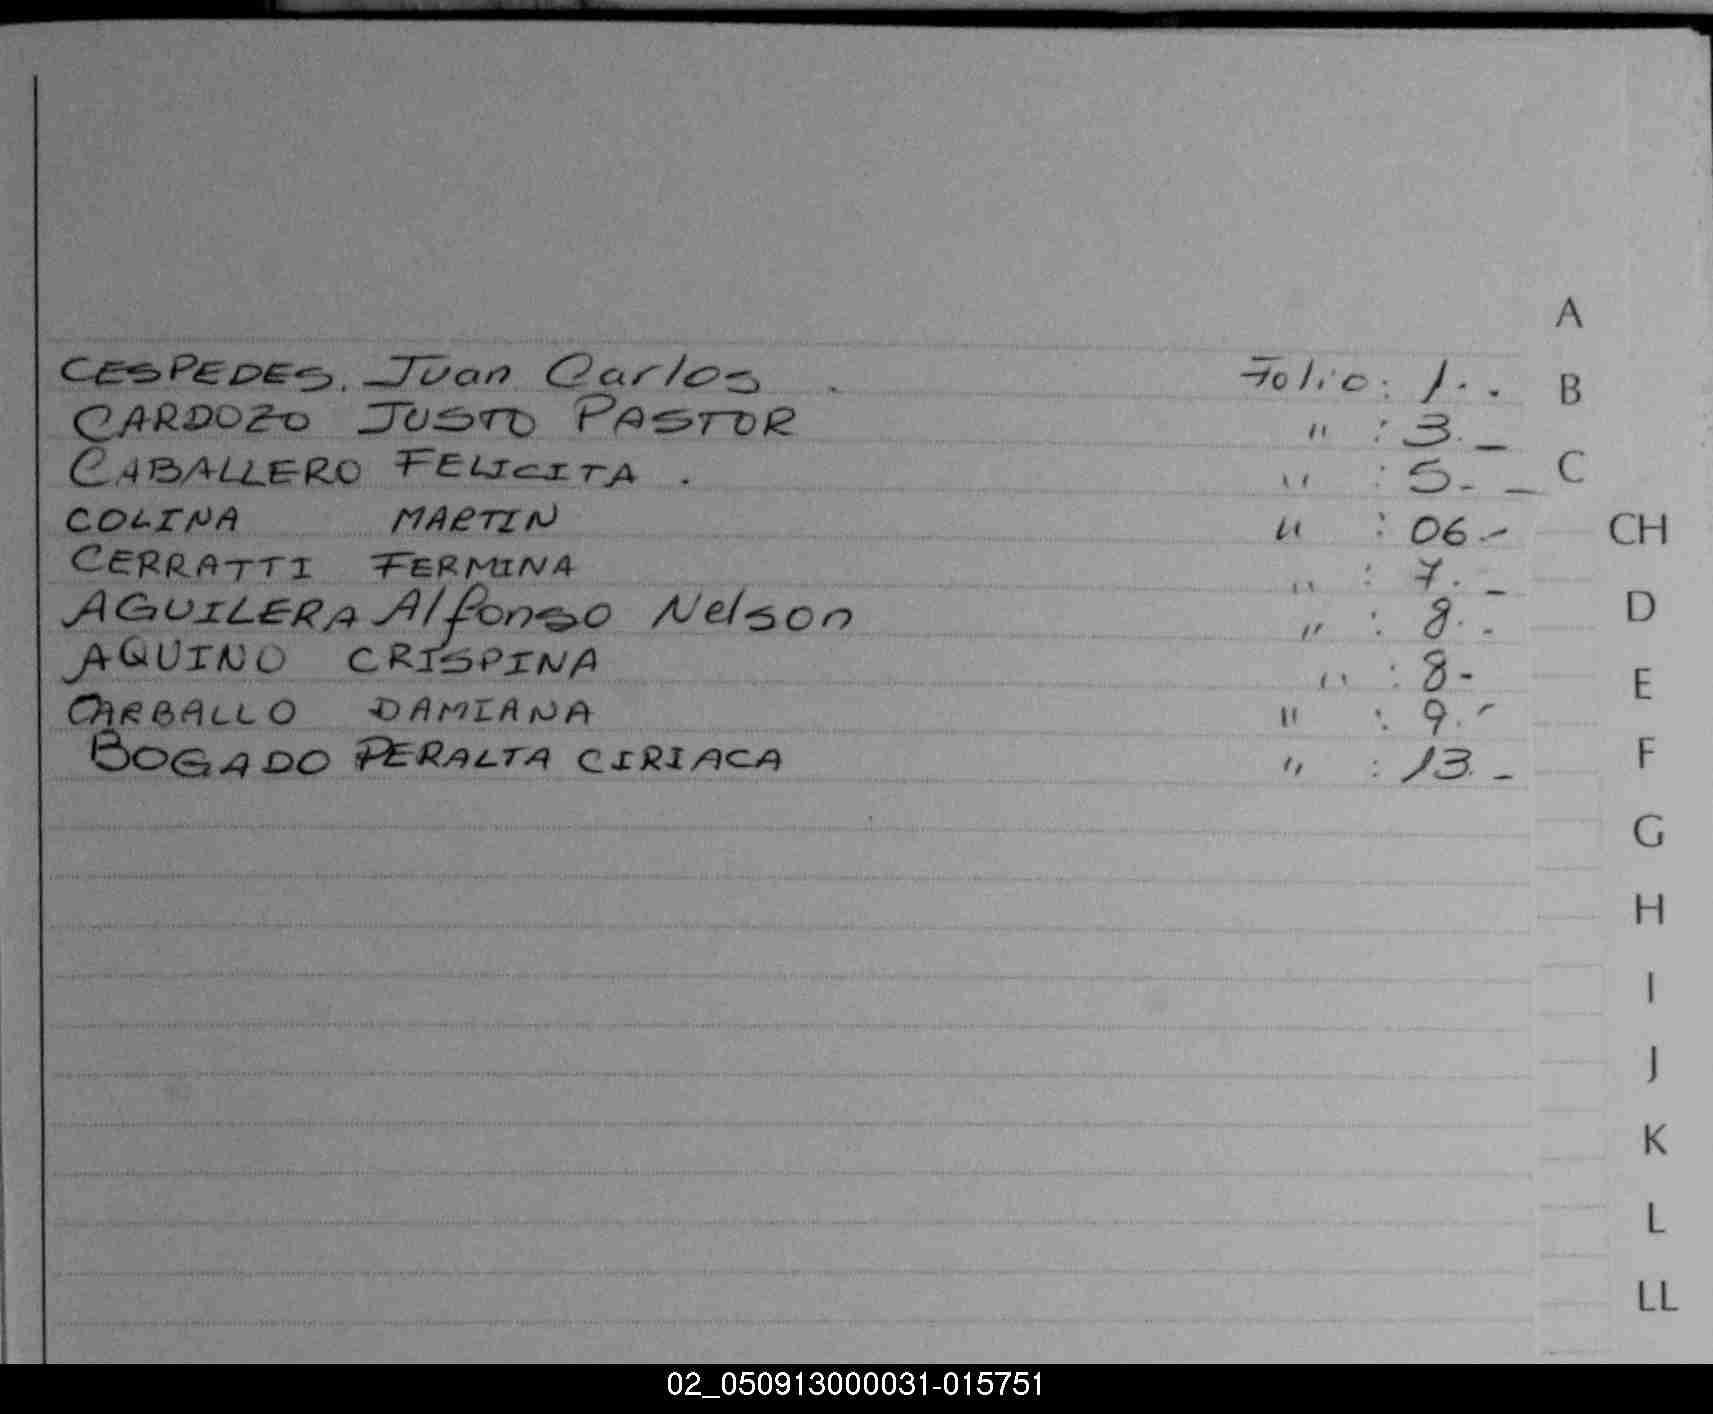 A
CESPEDES. Juan Carlos . Folio: 1. .
B
CARDOZO JUSTO PASTOR " : 3. _
CABALLERO FELICITA . " : 5. _
C
COLINA MARTIN " : 06.-
CH
CERRATTI FERMINA " : 7. _
AGUILERA Alfonso Nelson " : 8. -
D
AQUINO CRISPINA " : 8-
E
CARBALLO DAMIANA " : 9.-
BOGADO PERALTA CIRIACA " : 13. -
F
G
H
I
J
K
L
LL
02_050913000031-015751